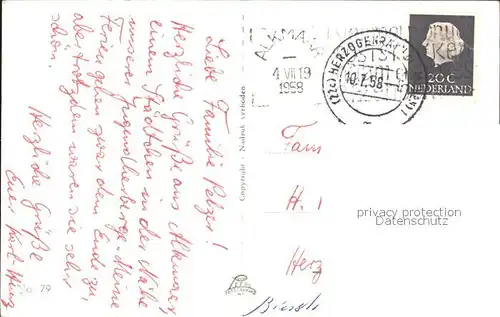 Liebe Familie Pelzer!
Herzliche Grüße aus Alkmaar,
einem Städtchen in der Nähe
unserer Jugendherberge. Meine
Ferien gehen zwar dem Ende zu,
aber trotzdem waren sie sehr
schön.
Herzliche Grüße
Euer Karl-Heinz
79
Copyright - Nadruk verboden
ALKMAAR
4 VII 19
1958
(22c) HERZOGENRATH
10.7.58
20 C
NEDERLAND
Fam
H.
Herz
privacy protection
watermarks